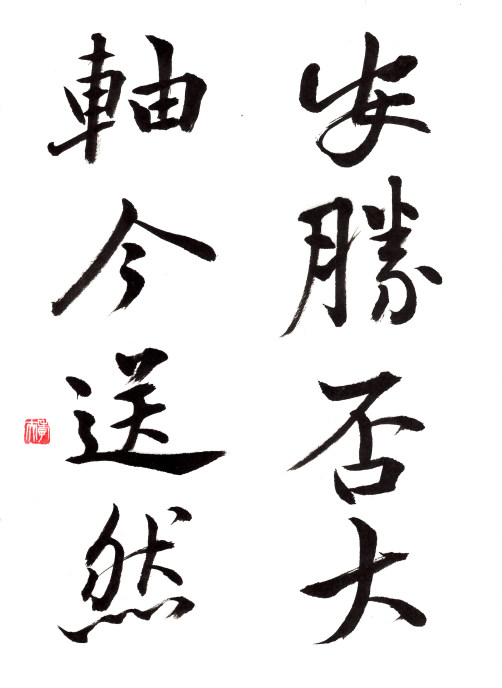 安勝否大
軸今送然